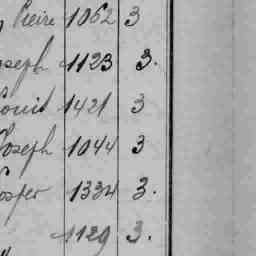 Pierre 1062 3
Joseph 1123 3.
Louis 1421 3
Joseph 1044 3
Prosper 1334 3.
1129 3.